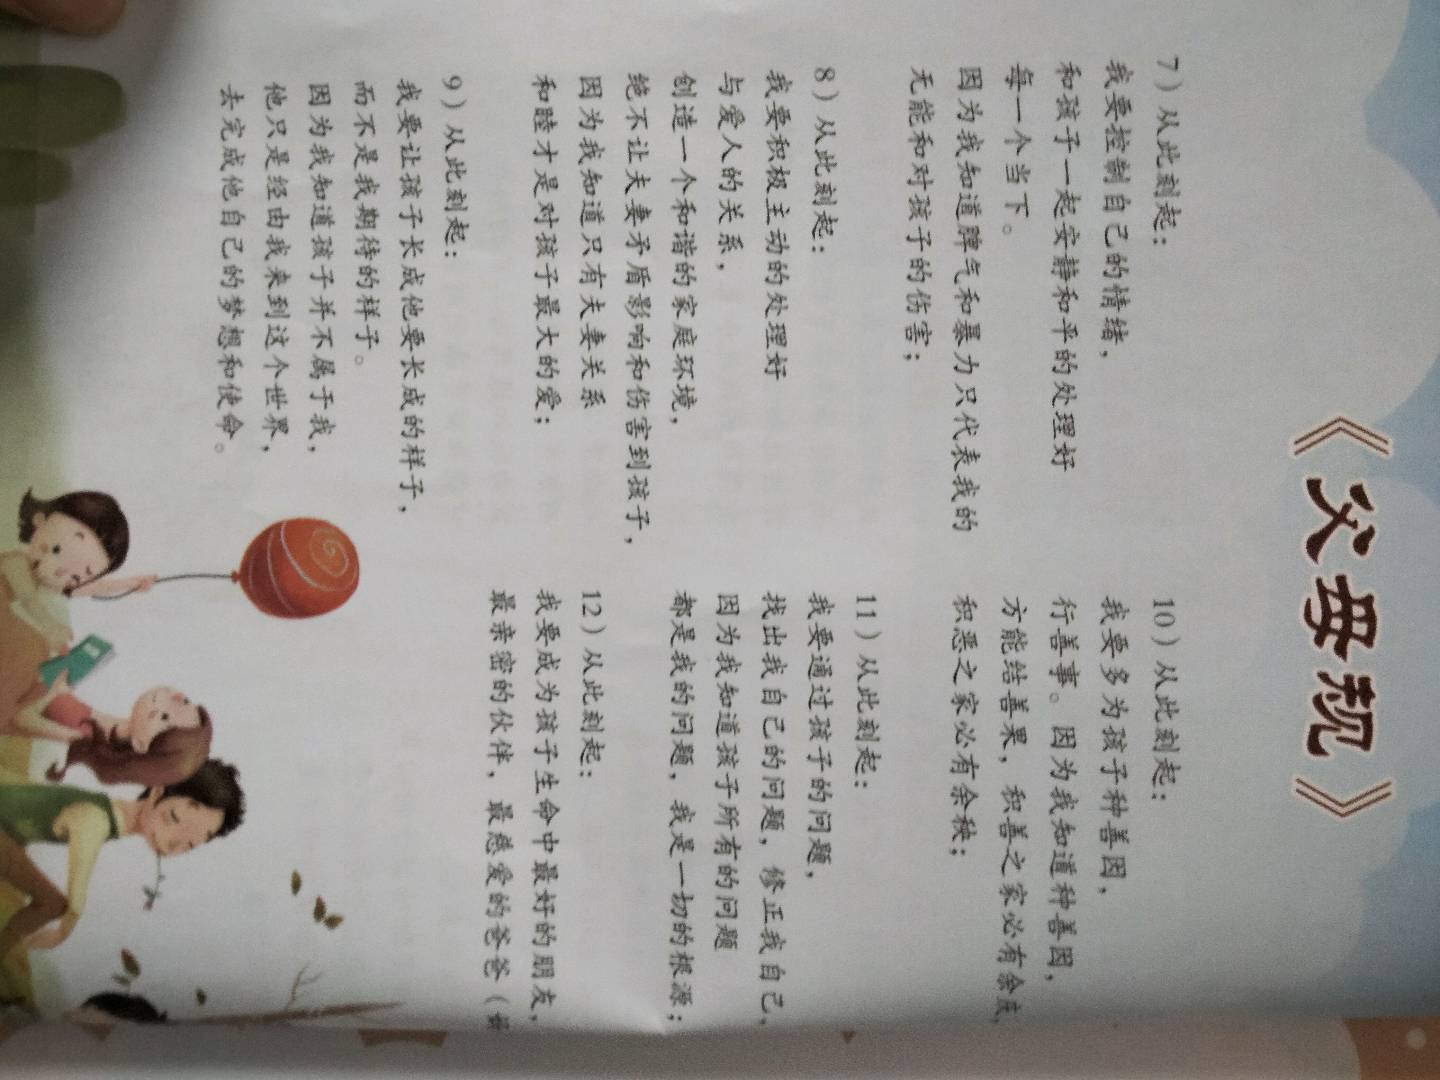 《父母规》
7）从此刻起：
我要控制自己的情绪，
和孩子一起安静和平的处理好
每一个当下。
因为我知道脾气和暴力只代表我的
无能和对孩子的伤害；
8）从此刻起：
我要积极主动的处理好
与爱人的关系，
创造一个和谐的家庭环境，
绝不让夫妻矛盾影响和伤害到孩子，
因为我知道只有夫妻关系
和睦才是对孩子最大的爱；
9）从此刻起：
我要让孩子长成他要长成的样子，
而不是我期待的样子。
因为我知道孩子并不属于我，
他只是经由我来到这个世界，
去完成他自己的梦想和使命。
10）从此刻起：
我要多为孩子种善因，
行善事。因为我知道种善因，
方能结善果，积善之家必有余庆，
积恶之家必有余秧；
11）从此刻起：
我要通过孩子的问题，
找出我自己的问题，修正我自己，
因为我知道孩子所有的问题
都是我的问题，我是一切的根源；
12）从此刻起：
我要成为孩子生命中最好的朋友，
最亲密的伙伴，最慈爱的爸爸（